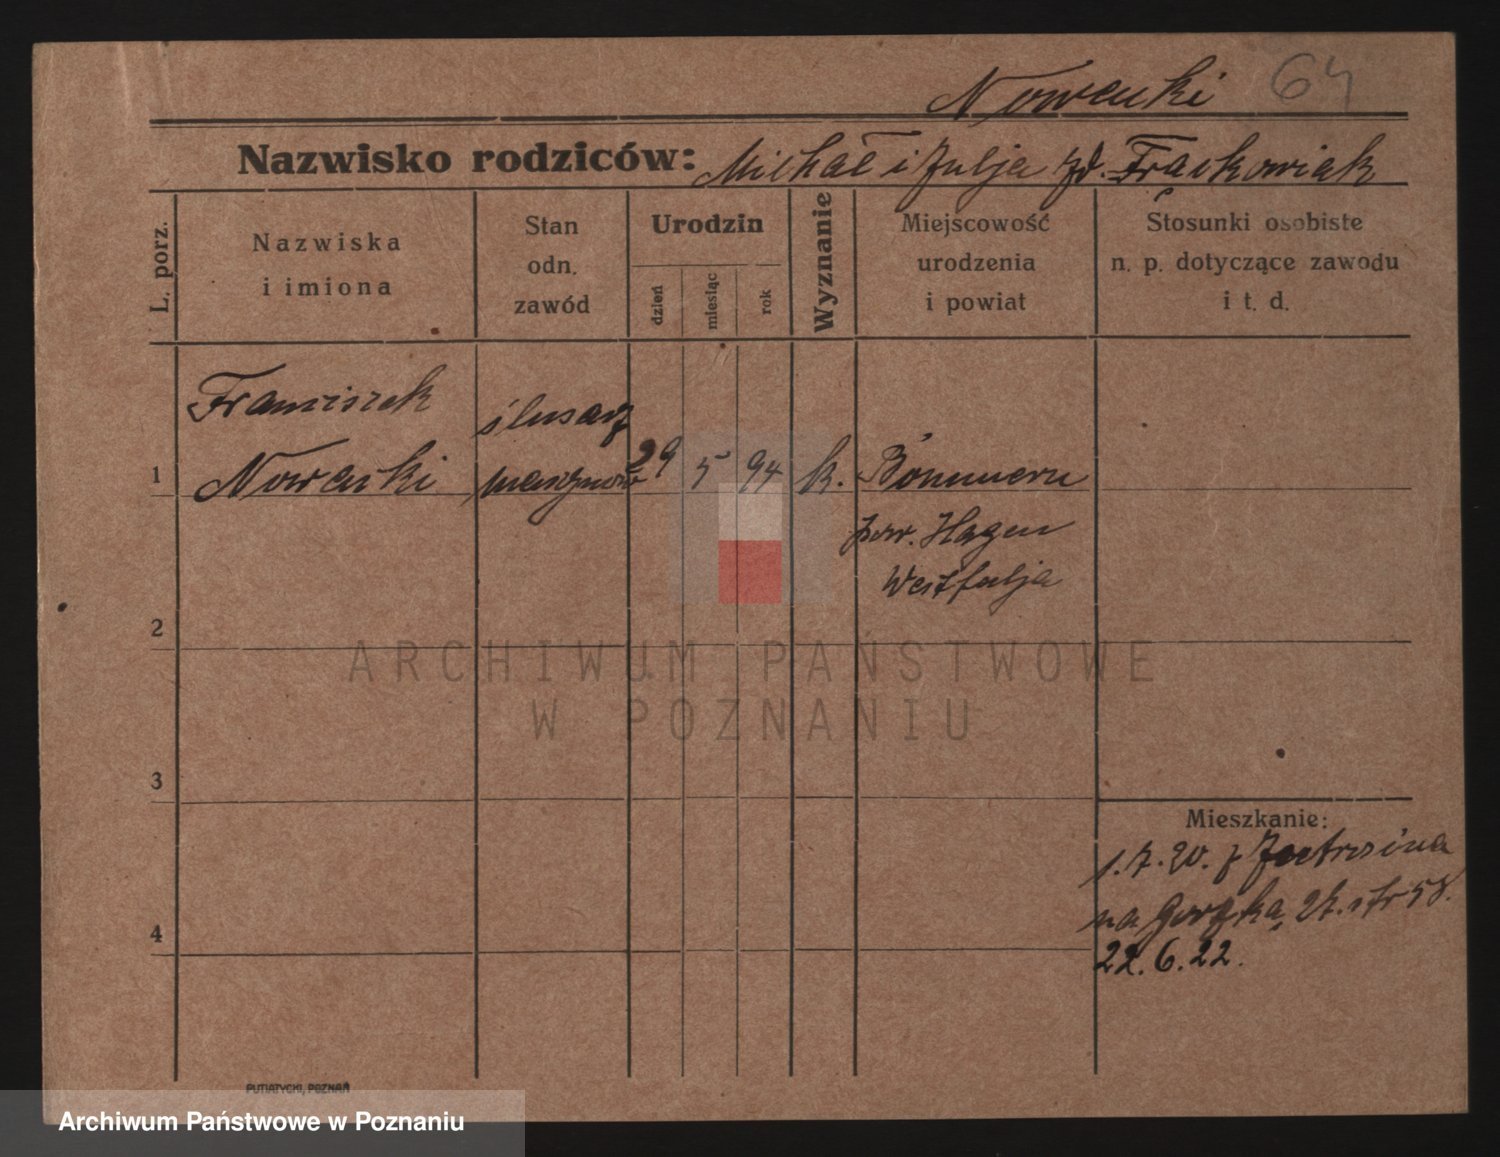 Nowacki 64
Nazwisko rodziców: Michał i Julja zd. Frąckowiak
L. porz.
Nazwiska
i imiona
Stan
odn.
zawód
Urodzin
dzień
miesiąc
rok
Wyznanie
Miejscowość
urodzenia
i powiat
Stosunki osobiste
n. p. dotyczące zawodu
i t. d.
Franciszek
Nowacki
ślusarz
maszynow
1
29 5 94 k. Bommern
pow. Hagen
Westfalja
2
3
4
Mieszkanie:
1.7.20. z
na 58.
22.6.22.
ARCHIWUM PAŃSTWOWE
W POZNANIU
PUTIATYCKI, POZNAŃ
Archiwum Państwowe w Poznaniu